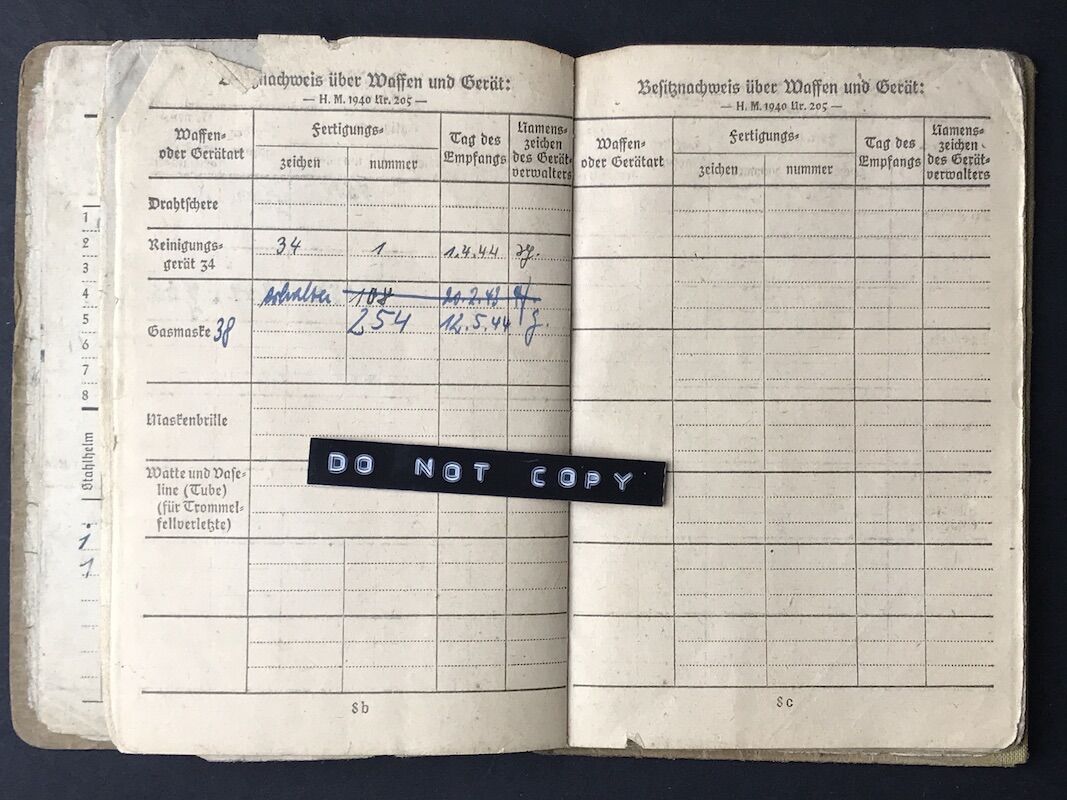 nachweis über Waffen und Gerät:
— H. M. 1940 Nr. 205 —
Waffen-
oder Gerätart
Fertigungs-
zeichen
nummer
Tag des
Empfangs
Namens-
zeichen
des Gerät-
verwalters
Drahtschere
Reinigungs-
gerät 34
34 1 1.4.44
erhalten 108 20.2.43
Gasmaske 38
254 12.5.44
Maskenbrille
Watte und Vase-
line (Tube)
(für Trommel-
fellverletzte)
8b
1
2
3
4
5
6
7
8
Stahlhelm
1
1
DO NOT COPY
Besitznachweis über Waffen und Gerät:
— H. M. 1940 Nr. 205 —
Waffen-
oder Gerätart
Fertigungs-
zeichen
nummer
Tag des
Empfangs
Namens-
zeichen
des Gerät-
verwalters
8c